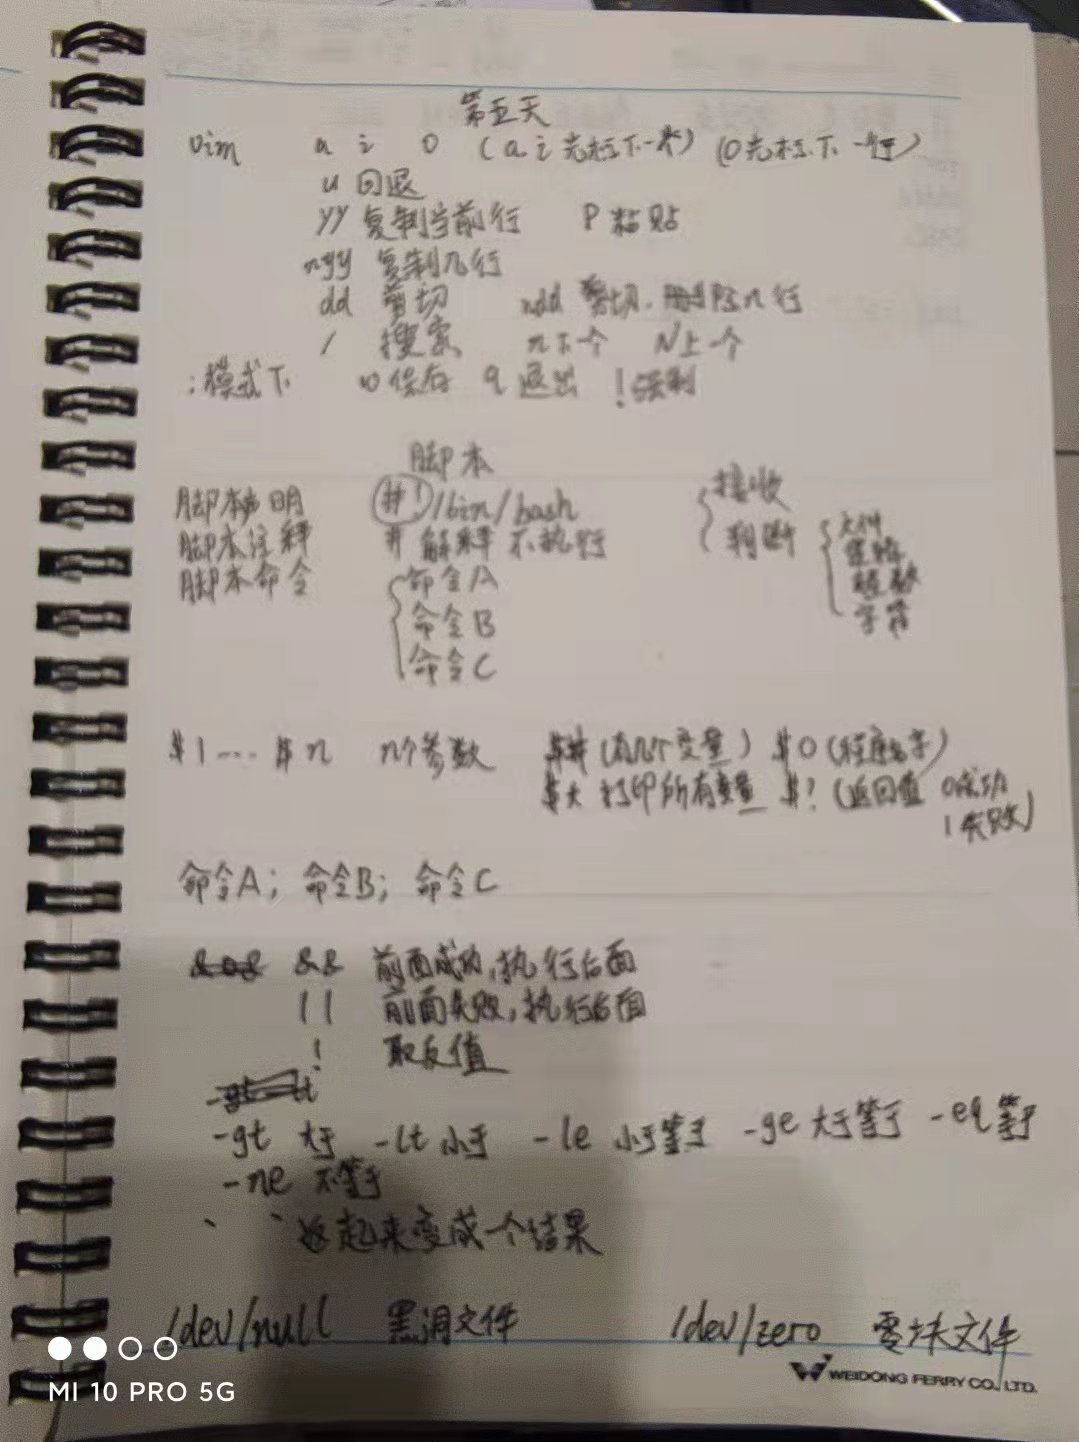 第五天
vim a i o (a i 光标下一个) (o光标下一行)
u 回退
yy 复制当前行 P 粘贴
nyy 复制几行
dd 剪切 ndd 剪切.删除n行
/ 搜索 n下个 N上一个
:模式下 w保存 q 退出 !强制
脚本
脚本声明 #!/bin/bash
脚本注释 # 解释 不执行
脚本命令 命令A
命令B
命令C
接收
判断 文件
整数
字符
$1...$n n个参数 $# (有几个变量) $0 (程序名字)
$* 打印所有变量 $? (返回值 0成功
1失败)
命令A; 命令B; 命令C
&& 前面成功,执行后面
|| 前面失败,执行后面
! 取反值
-gt 大于 -lt 小于 -le 小于等于 -ge 大于等于 -eq 等于
-ne 不等于
` ` 起来变成一个结果
/dev/null 黑洞文件 /dev/zero 零文件
WEIDONG FERRY CO., LTD.
MI 10 PRO 5G